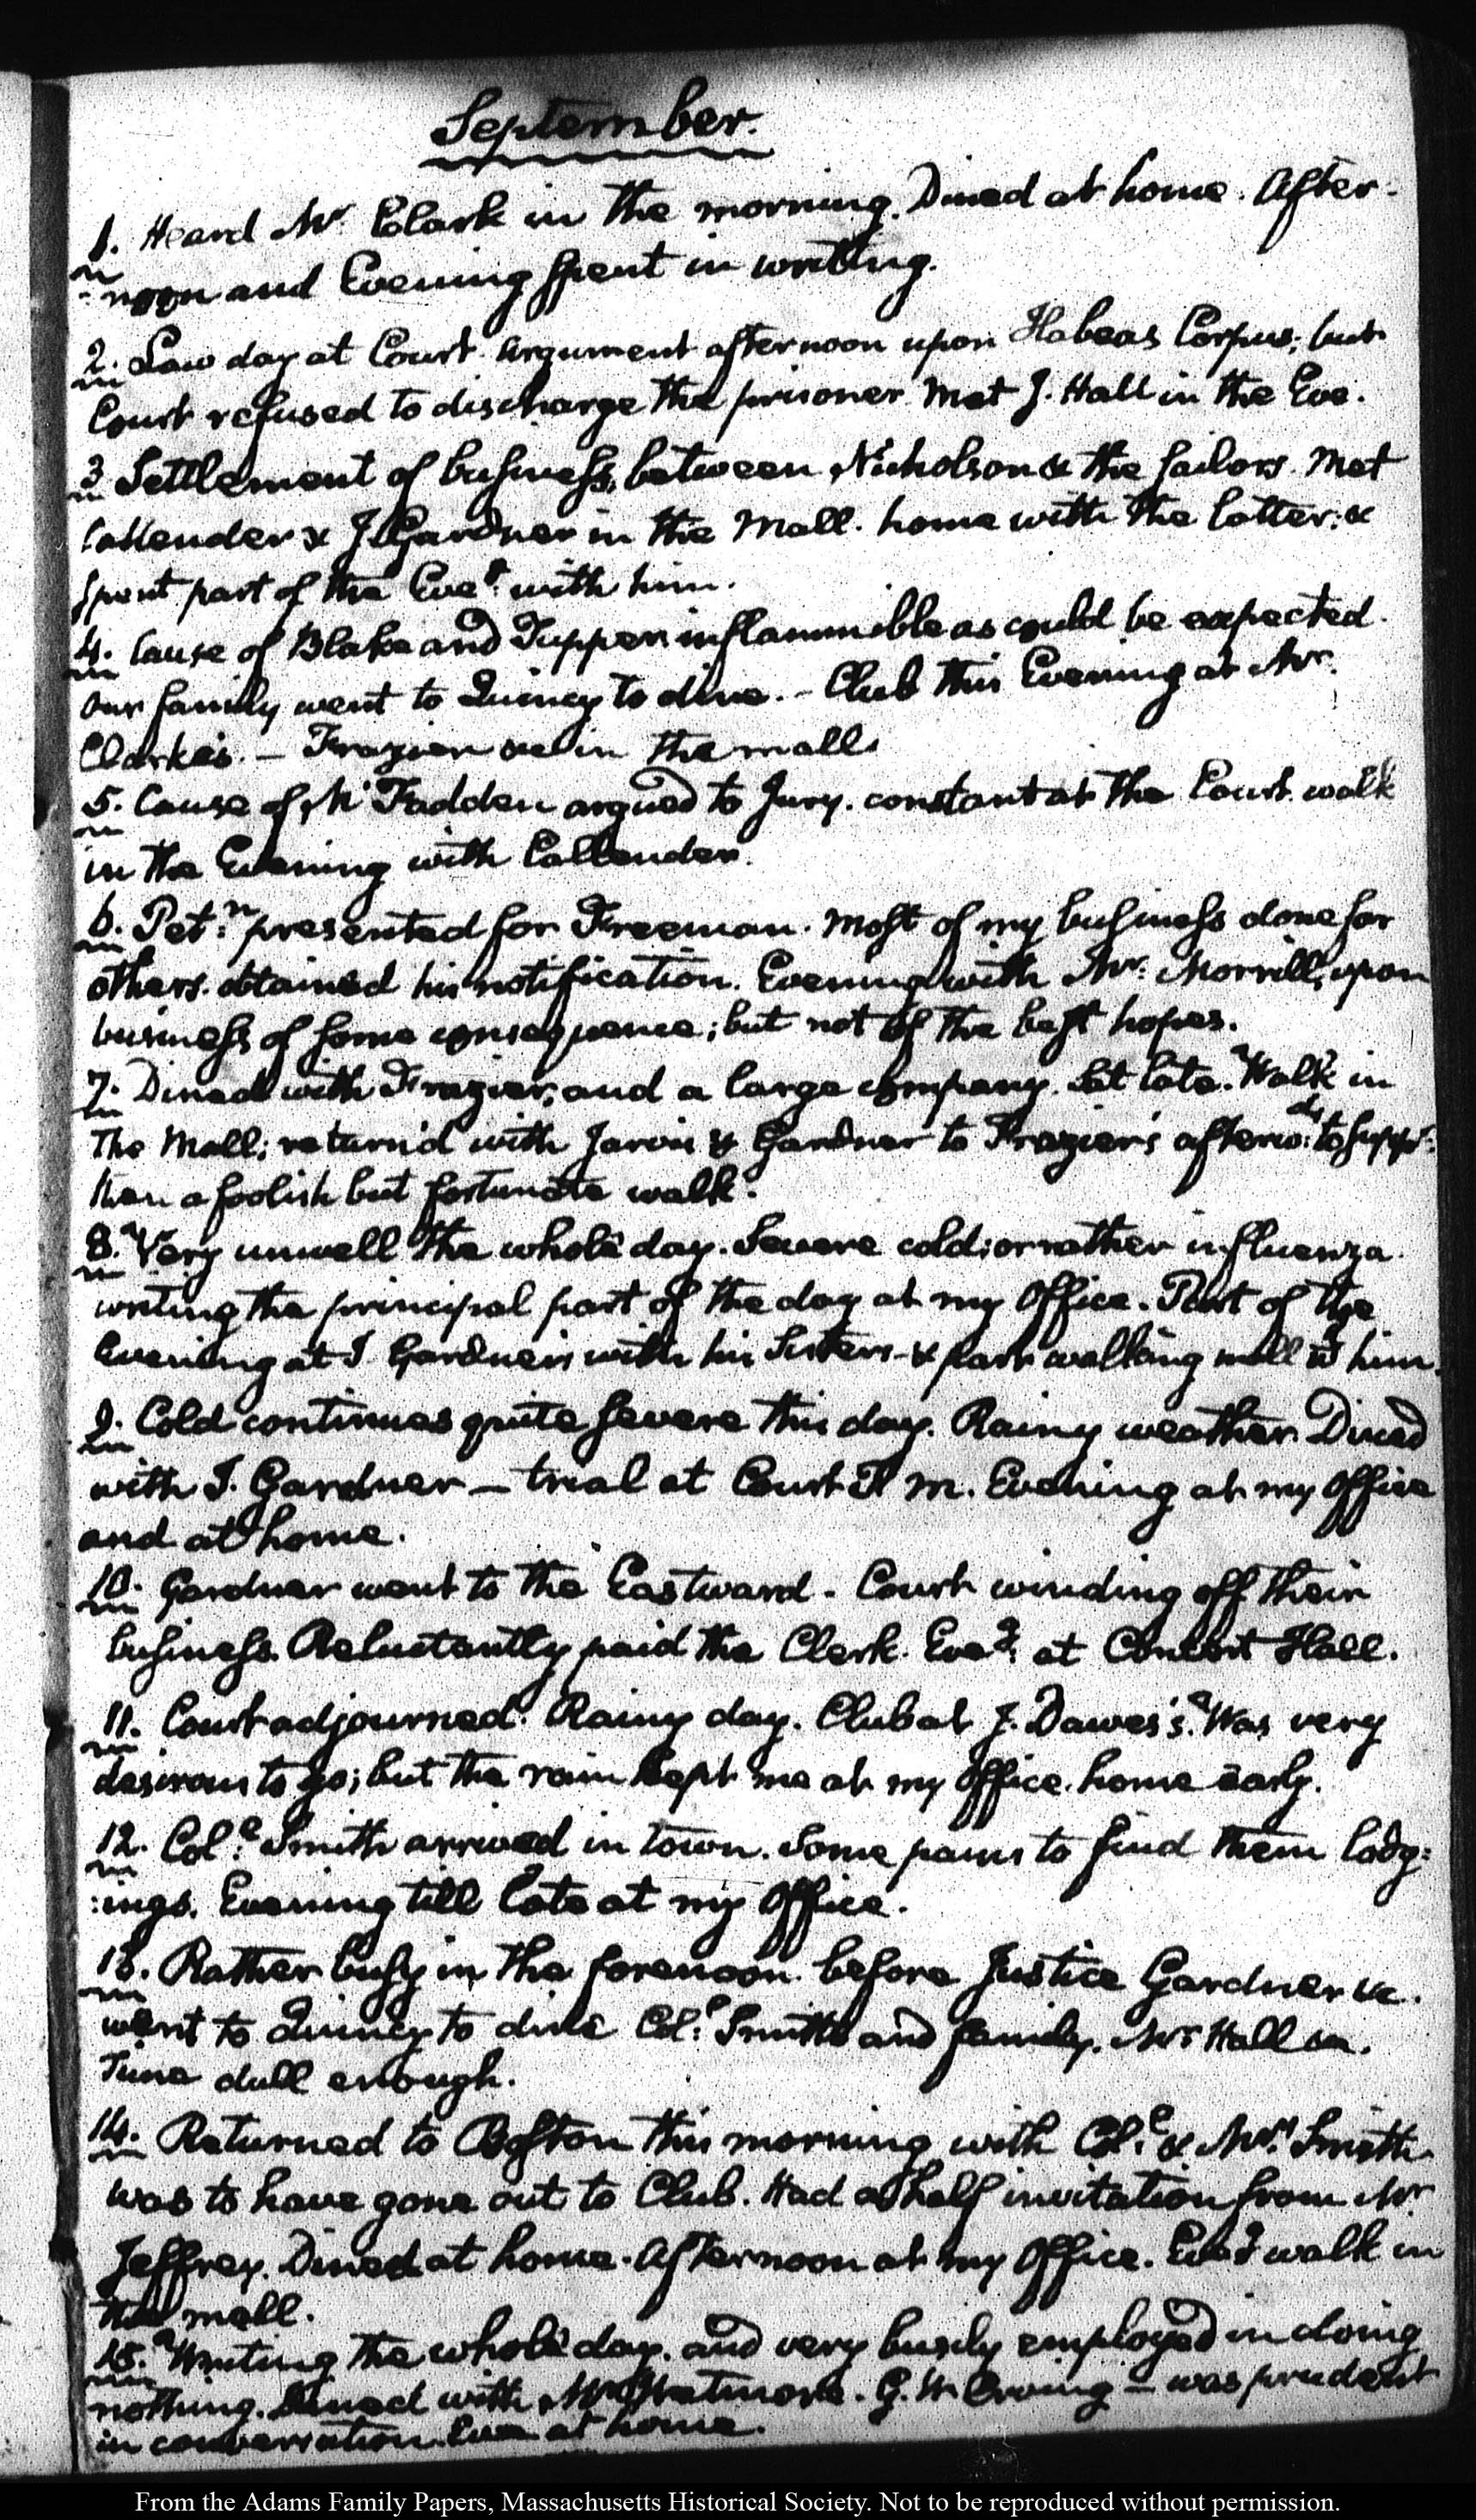 September.
1. Heard Mr. Clark in the morning. Dined at home. After-
-noon and Evening spent in writing.
2. Law day at Court. Argument afternoon upon Habeas Corpus; but
Court refused to discharge the prisoner. Met J. Hall in the Eve.
3 Settlement of business, between Nicholson & the sailors. Met
Callender & J. Gardner in the Mall. home with the latter: &
spent part of the Eveg. with him.
4. Cause of Blake and Tupper inflammible as could be expected.
Our family went to Quincy to dine. - Club this Evening at Mr.
Clarke's. - Frazier &c in the mall.
5. Cause of McFadden argued to Jury. constant at the Court. walk
in the Evening with Callender.
6. Petn: presented for Freeman. Most of my business done for
others. obtained his notification. Evening with Mr. Morrill, upon
business of some consequence; but not of the best hopes.
7. Dined with Frazier, and a large company. Sat late. Walk in
the Mall: return'd with Jarvis & Gardner to Frazier's afterwds: to suppr:
then a foolish but fortunate walk.
8. Very unwell the whole day. Severe cold; or rather influenza.
writing the principal part of the day at my Office. Part of the
Evening at J. Gardner's with his Sisters - & part walking mall with him.
9. Cold continues quite severe this day. Rainy weather. Dined
with J. Gardner - trial at Court P. M. Evening at my Office
and at home.
10. Gardner went to the Eastward. Court winding off their
business. Reluctantly paid the Clerk. Eveg: at Concert Hall.
11. Court adjourned. Rainy day. Club at J. Dawes's. Was very
desirous to go; but the rain kept me at my Office. home early.
12. Coll: Smith arrived in town. Some pains to find them lodg:
:ings. Evening till late at my Office.
13. Rather busy in the forenoon. before Justice Gardner &c.
went to Quincy to dine Coll: Smith and family. Mr. Hall &c.
Time dull enough.
14. Returned to Boston this morning with Coll: & Mrs. Smith
was to have gone out to Club. Had a half invitation from Mr
Jeffrey. Dined at home. Afternoon at my Office. Eveg walk in
the mall.
15. Writing the whole day. and very busily employed in doing
nothing. Dined with Mr. Wetmore. G. W. Erving - was prudent
in conversation. Eve at home.
From the Adams Family Papers, Massachusetts Historical Society. Not to be reproduced without permission.